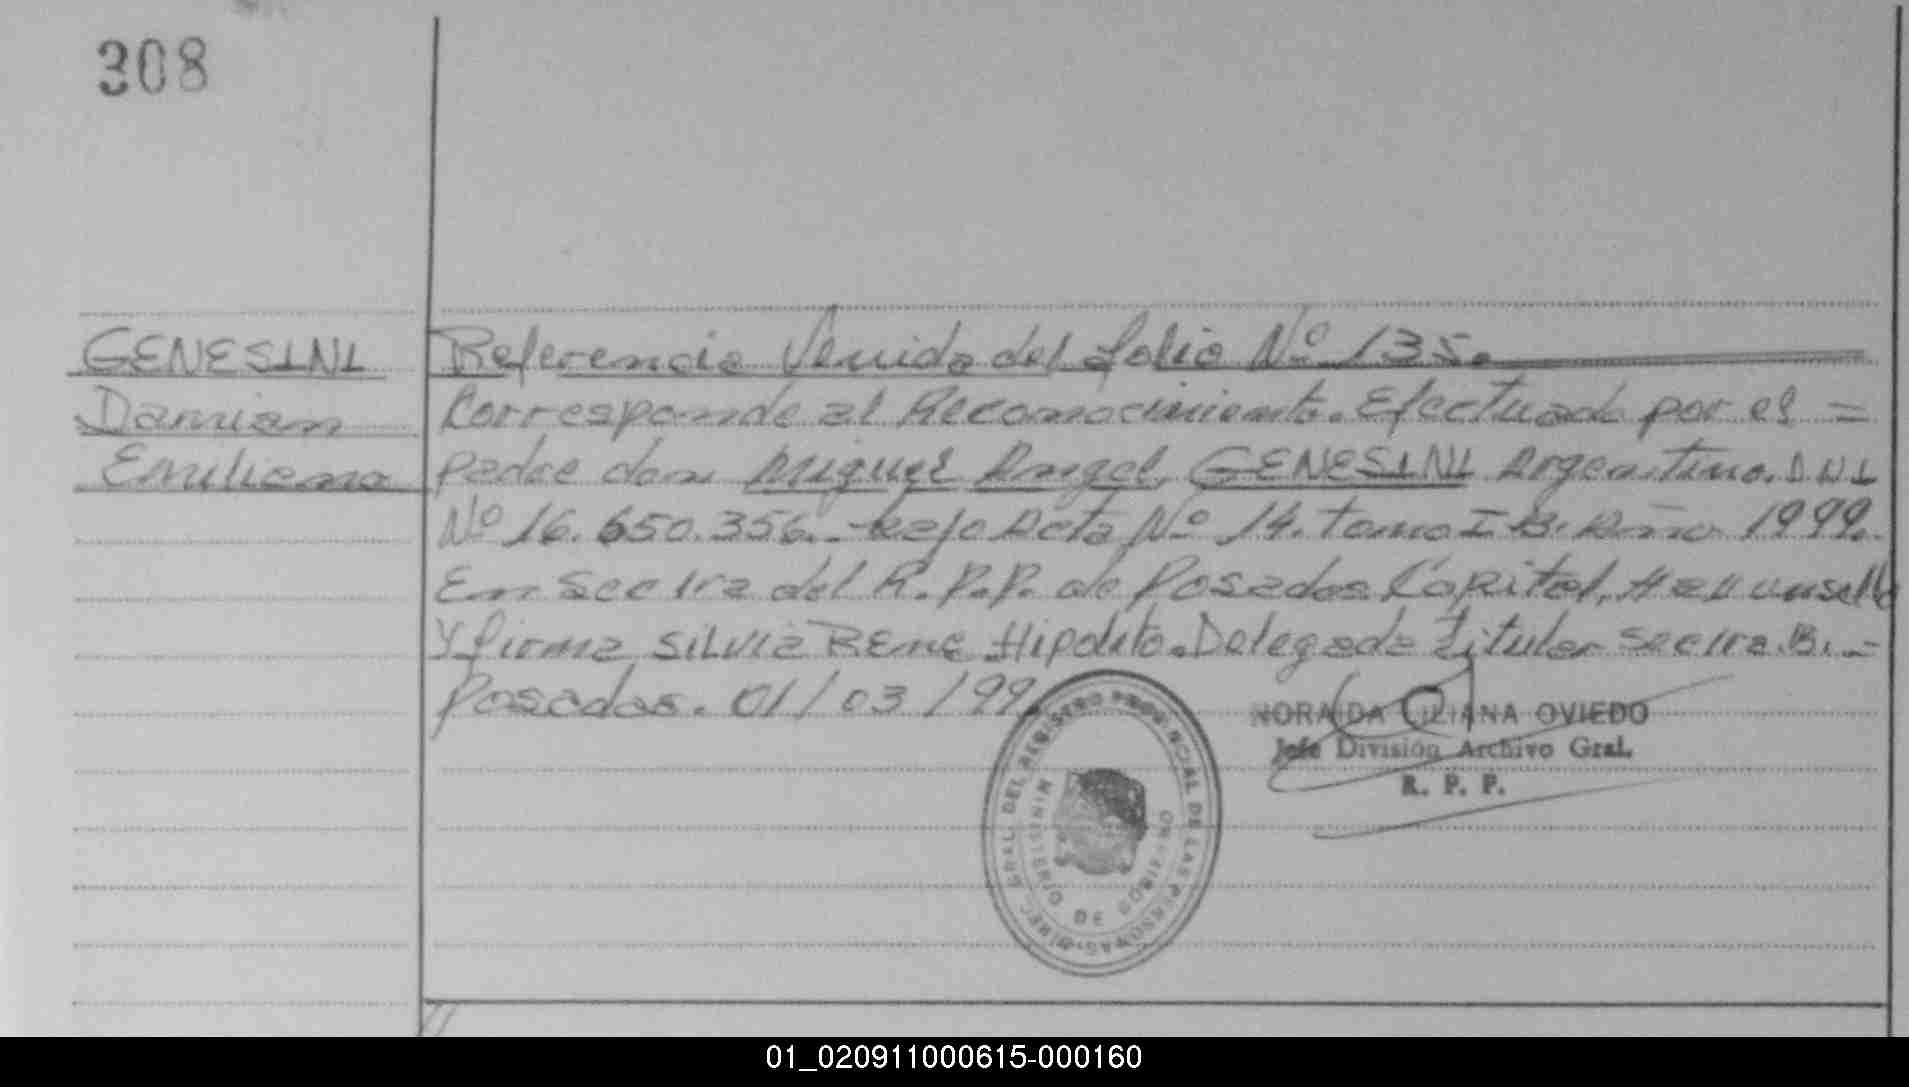 308
GENESINI
Damian
Emiliano
Referencia Venida del folio Nº 135.
Corresponde al Reconocimiento. Efectuado por el =
padre don Miguel Angel GENESINI Argentino. DNI
Nº 16.650.356.- bajo Acta Nº 14. tomo I B. Año 1999.
En Sec 1ra del R.P.P. de Posadas Capital, Hay un sello
Y firma Silvia Rene Hipolito. Delegada titular Sec 1ra. B. -
Posadas. 01/03/99
DIREC. GRAL DEL REGISTRO PROVINCIAL DE LAS PERSONAS
MINISTERIO DE GOBIERNO
NORAIDA LILIANA OVIEDO
Jefe División Archivo Gral.
R. P. P.
01_020911000615-000160